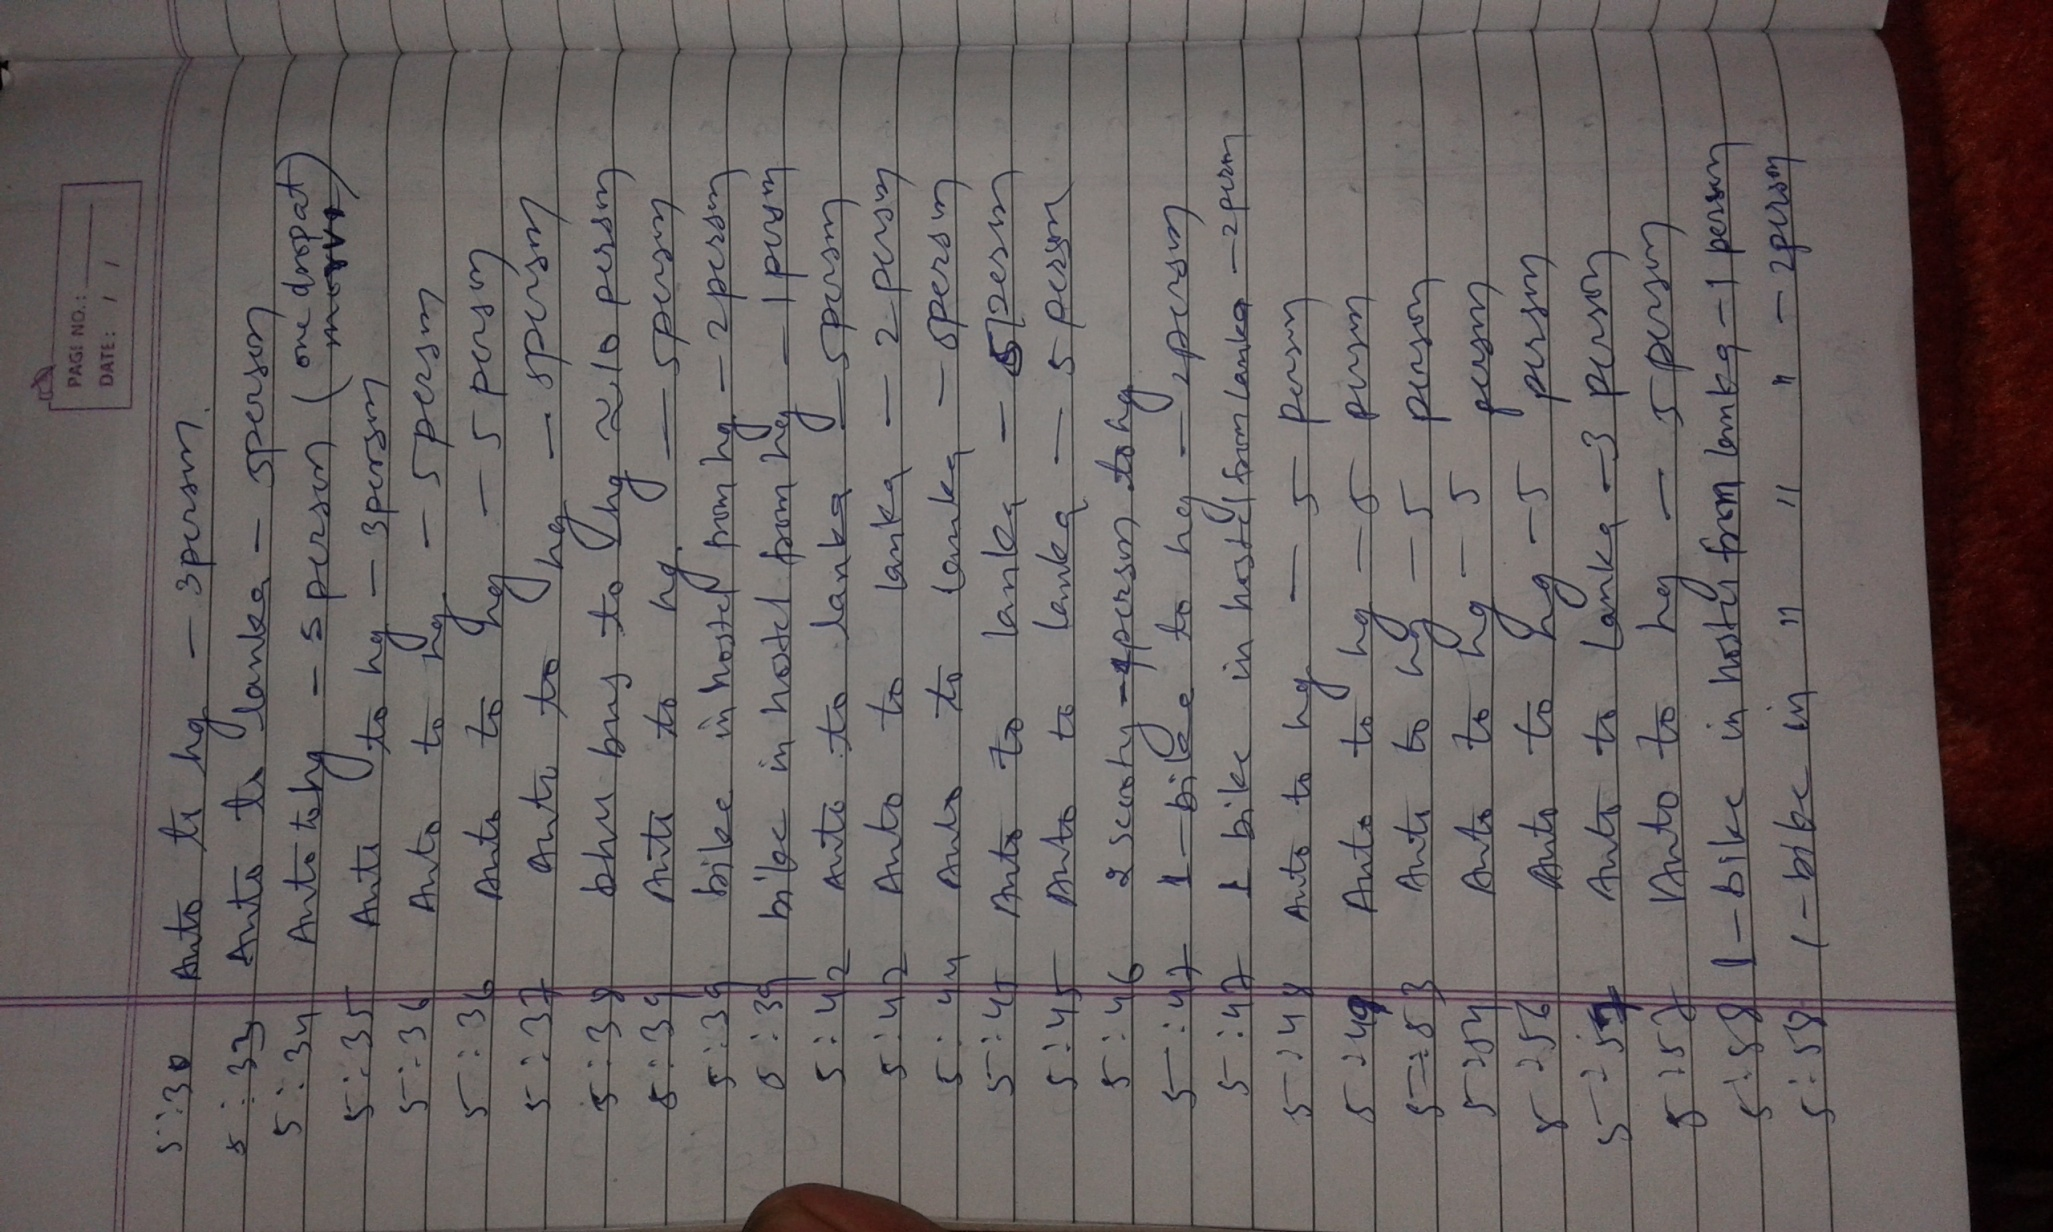 PAGE NO.:
DATE: / /
5:30 Auto to hg - 3 person.
5:33 Auto to lanka - 5person
5:34 Auto to hg - 5 person (one drop at
5:35 Auto to hg - 3person
5:36 Auto to hg - 5person
5:36 Auto to hg - 5 person
5:37 Auto to hg - 5person
5:38 bhu bus to hg ≈ 10 person
5:39 Auto to hg - 5person
5:39 bike in hostel from hg - 2 person
5:39 bike in hostel from hg - 1 person
5:42 Auto to lanka - 5 person
5:42 Auto to lanka - 2 person
5:44 Auto to lanka - 5person
5:45 Auto to lanka - 5person
5:45 Auto to lanka - 5 person
5:46 2 scooty - person to hg
5:47 1 - bike to hg - 2person
5:47 1 bike in hostel from lanka - 2 person
5:48 Auto to hg - 5 person
5:49 Auto to hg - 5 person
5:53 Auto to hg - 5 person
5:54 Auto to hg - 5 person
5:56 Auto to hg - 5 person
5:57 Auto to Lanka - 3 person
5:57 Auto to hg - 5 person
5:58 1 - bike in hostel from lanka - 1 person
5:58 1 - bike in " " " " - 2person